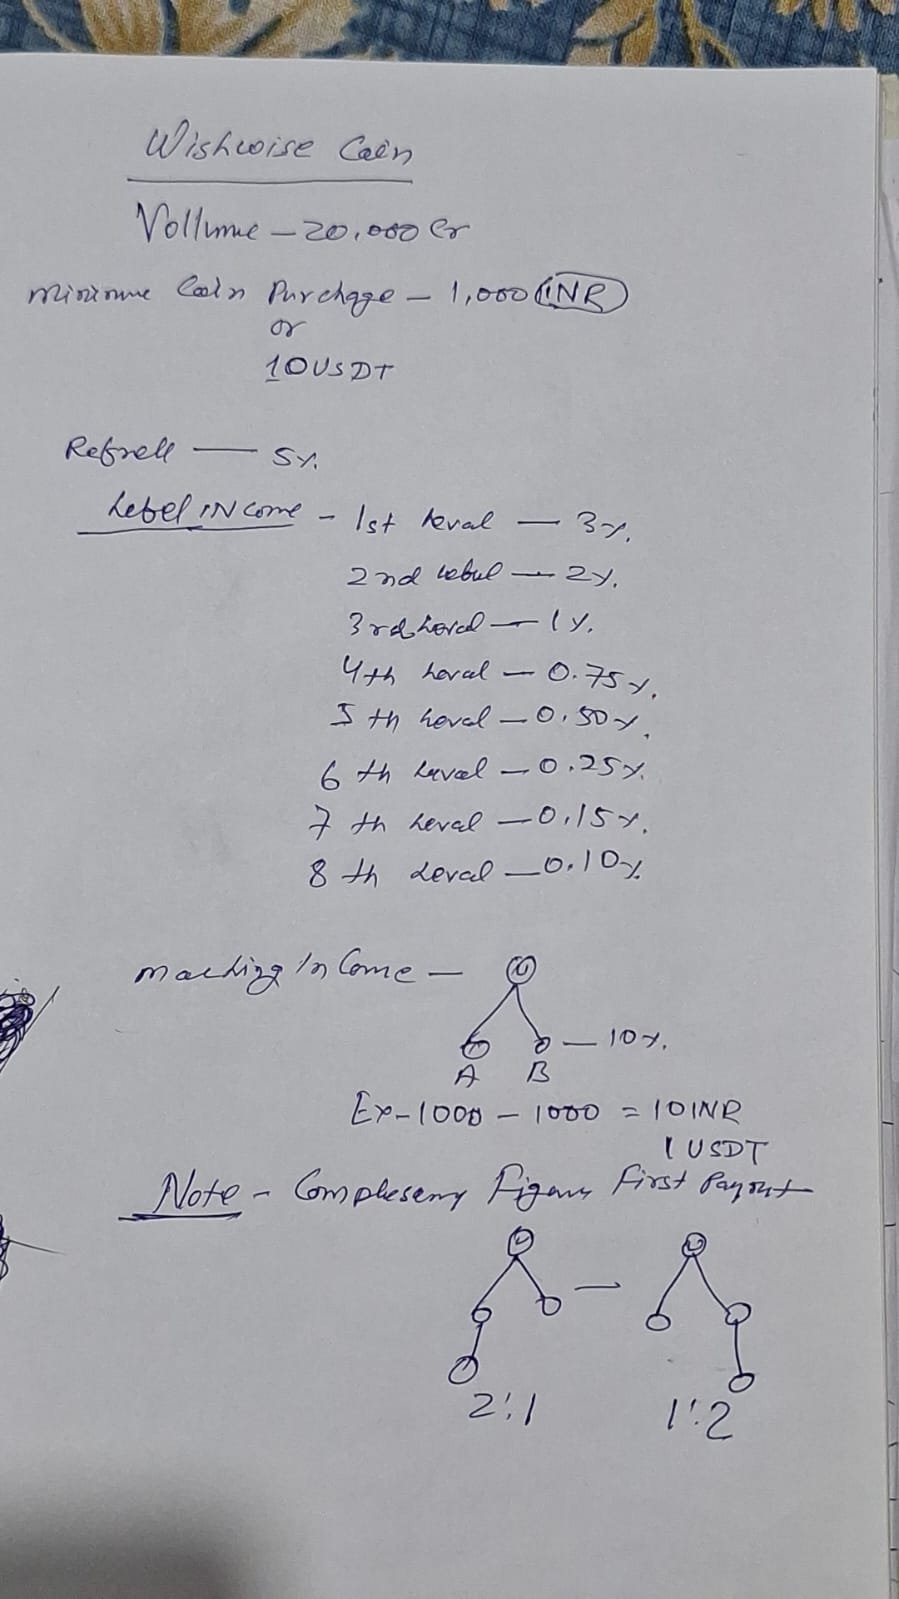 Wishwise Coin
Vollume - 20,000 Cr
Minimume Coin Purchage - 1,000 INR
or
10USDT
Refrell — 5%
Lebel INcome - 1st leval — 3%.
2nd lebul — 2%.
3rd Leval — 1%.
4th Leval — 0.75%.
5th Leval — 0.50%.
6th Laval — 0.25%.
7th Leval — 0.15%.
8th Leval — 0.10%
Matching In Come —
— 10%.
A B
Ex - 1000 - 1000 = 10INR
1 USDT
Note - First Payout
—
2:1 1:2